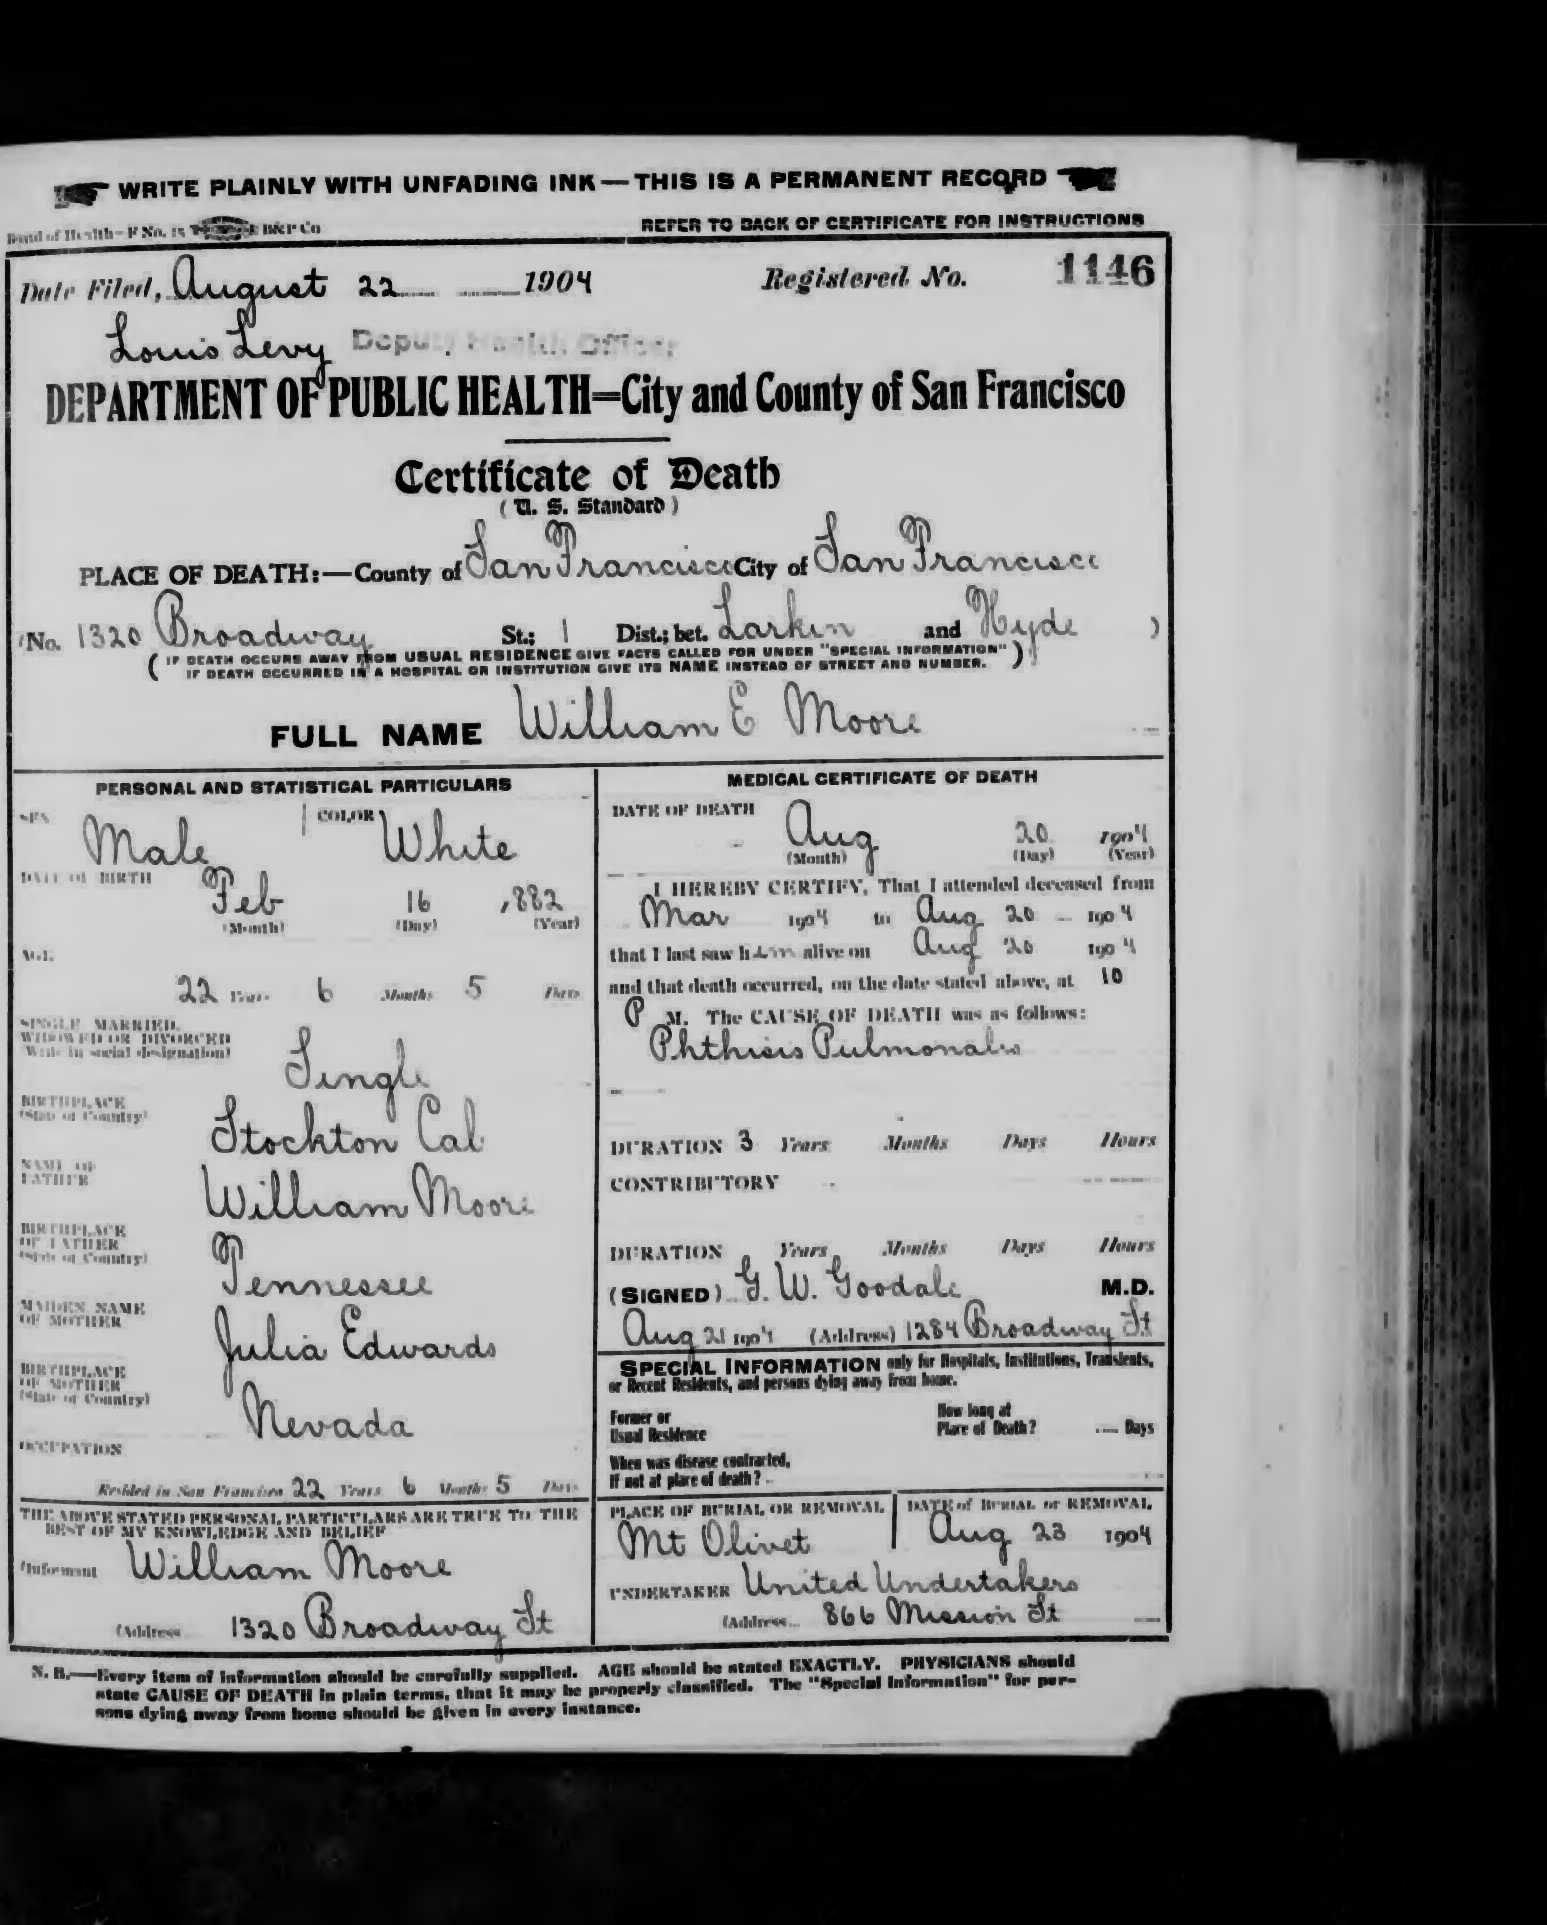 WRITE PLAINLY WITH UNFADING INK—THIS IS A PERMANENT RECORD
Board of Health—F No. 15 B&P Co
REFER TO BACK OF CERTIFICATE FOR INSTRUCTIONS
Date Filed, August 22 1904 Registered No. 1146
Louis Levy Deputy Health Officer
DEPARTMENT OF PUBLIC HEALTH=City and County of San Francisco
Certificate of Death
(U. S. Standard)
PLACE OF DEATH:—County of San Francisco City of San Francisco
(No. 1320 Broadway St.; 1 Dist.; bet. Larkin and Hyde )
( IF DEATH OCCURS AWAY FROM USUAL RESIDENCE GIVE FACTS CALLED FOR UNDER "SPECIAL INFORMATION" )
IF DEATH OCCURRED IN A HOSPITAL OR INSTITUTION GIVE ITS NAME INSTEAD OF STREET AND NUMBER.
FULL NAME William E Moore
PERSONAL AND STATISTICAL PARTICULARS
SEX Male COLOR White
DATE OF BIRTH
Feb 16 1882
(Month) (Day) (Year)
AGE
22 Years 6 Months 5 Days
SINGLE, MARRIED,
WIDOWED OR DIVORCED
(Write in social designation)
Single
BIRTHPLACE
(State or Country)
Stockton Cal
NAME OF
FATHER
William Moore
BIRTHPLACE
OF FATHER
(State or Country)
Tennessee
MAIDEN NAME
OF MOTHER
Julia Edwards
BIRTHPLACE
OF MOTHER
(State or Country)
Nevada
OCCUPATION
Resided in San Francisco 22 Years 6 Months 5 Days
THE ABOVE STATED PERSONAL PARTICULARS ARE TRUE TO THE
BEST OF MY KNOWLEDGE AND BELIEF
(Informant William Moore
(Address 1320 Broadway St
MEDICAL CERTIFICATE OF DEATH
DATE OF DEATH
Aug 20 1904
(Month) (Day) (Year)
I HEREBY CERTIFY, That I attended deceased from
Mar 1904 to Aug 20 1904
that I last saw him alive on Aug 20 1904
and that death occurred, on the date stated above, at 10
P M. The CAUSE OF DEATH was as follows:
Phthisis Pulmonalis
DURATION 3 Years Months Days Hours
CONTRIBUTORY
DURATION Years Months Days Hours
(SIGNED) G. W. Goodale M.D.
Aug 21 1904 (Address) 1284 Broadway St
SPECIAL INFORMATION only for Hospitals, Institutions, Transients,
or Recent Residents, and persons dying away from home.
Former or
Usual Residence
How long at
Place of Death? Days
When was disease contracted,
If not at place of death?
PLACE OF BURIAL OR REMOVAL
Mt Olivet
DATE of BURIAL or REMOVAL
Aug 23 1904
UNDERTAKER United Undertakers
(Address 866 Mission St
N. B.—Every item of information should be carefully supplied. AGE should be stated EXACTLY. PHYSICIANS should
state CAUSE OF DEATH in plain terms, that it may be properly classified. The "Special Information" for per-
sons dying away from home should be given in every instance.